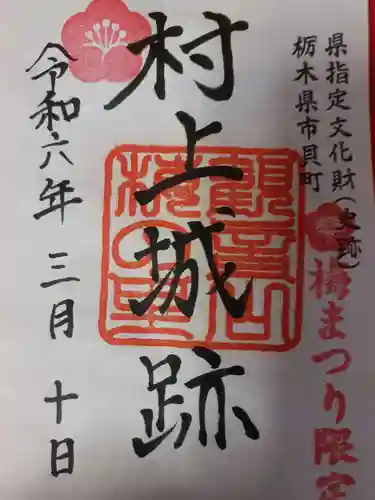 県指定文化財(史跡)
栃木県市貝町
梅まつり限定
村上城跡
観音山
梅の里
令和六年 三月 十日